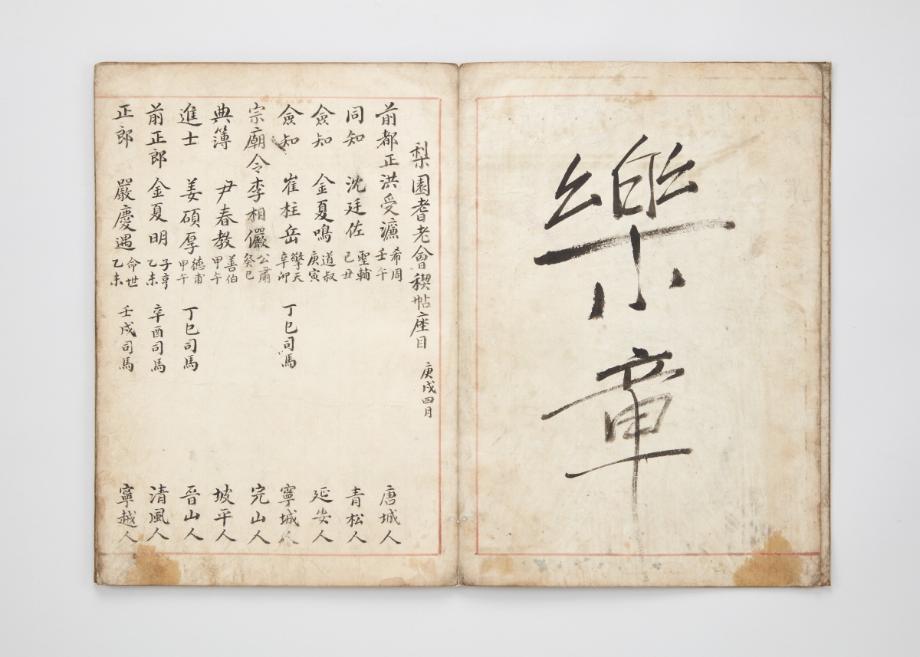 樂章
梨園耆老會稧帖座目 庚戌四月
前都正洪受濂 希周 壬午 唐城人
同知 沈廷佐 聖輔 己丑 青松人
僉知 金夏鳴 道叔 庚寅 延安人
僉知 崔柱岳 擎天 辛卯 丁巳司馬 寧城人
宗廟令李相儼 公肅 癸巳 完山人
典簿 尹春教 善伯 甲午 坡平人
進士 姜碩厚 德甫 甲午 丁巳司馬 晉山人
前正郎 金夏明 子亨 乙未 辛酉司馬 清風人
正郎 嚴慶遇 命世 乙未 壬戌司馬 寧越人